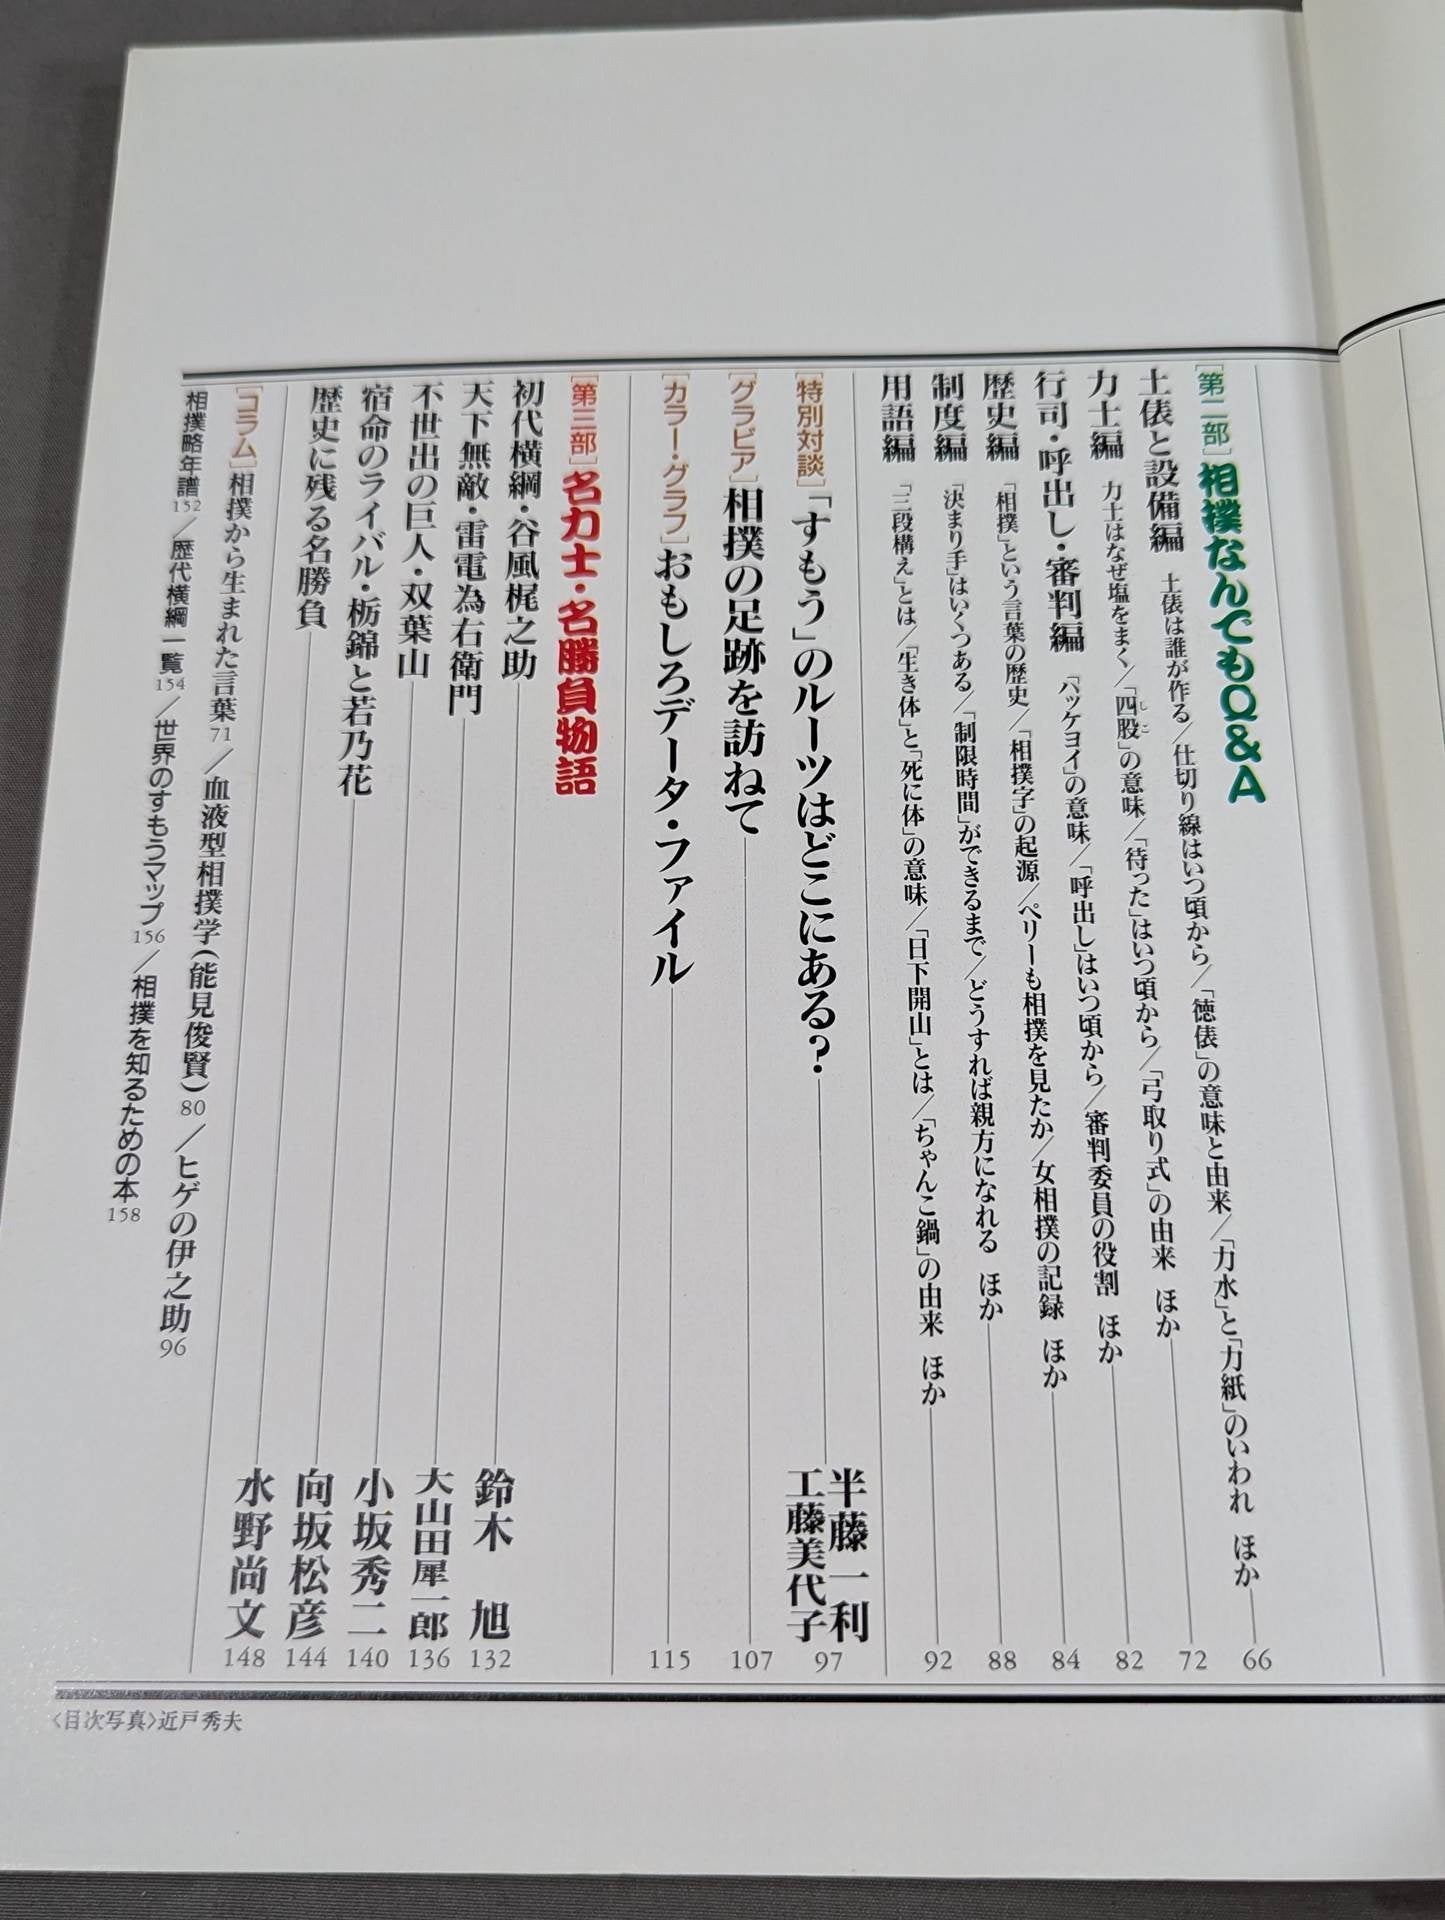 [第二部]相撲なんでもQ&A
土俵と設備編 土俵は誰が作る/仕切り線はいつ頃から/「徳俵」の意味と由来/「力水」と「力紙」のいわれ ほか 66
力士編 力士はなぜ塩をまく/「四股」の意味/「待った」はいつ頃から/「弓取り式」の由来 ほか 72
しこ
行司・呼出し・審判編 「ハッケヨイ」の意味/「呼出し」はいつ頃から/審判委員の役割 ほか 82
歴史編 「相撲」という言葉の歴史/「相撲字」の起源/ペリーも相撲を見たか/女相撲の記録 ほか 84
制度編 「決まり手」はいくつある/「制限時間」ができるまで/どうすれば親方になれる ほか 88
用語編 「三段構え」とは/「生き体」と「死に体」の意味/「日下開山」とは/「ちゃんこ鍋」の由来 ほか 92
[特別対談]「すもう」のルーツはどこにある? 半藤一利 工藤美代子 97
[グラビア]相撲の足跡を訪ねて 107
[カラー・グラフ]おもしろデータ・ファイル 115
[第三部]名力士・名勝負物語
初代横綱・谷風梶之助 鈴木 旭 132
天下無敵・雷電為右衛門 大山田犀一郎 136
不世出の巨人・双葉山 小坂秀二 140
宿命のライバル・栃錦と若乃花 向坂松彦 144
歴史に残る名勝負 水野尚文 148
[コラム]相撲から生まれた言葉71/血液型相撲学(能見俊賢)80/ヒゲの伊之助96
相撲略年譜152/歴代横綱一覧154/世界のすもうマップ156/相撲を知るための本158
〈目次写真〉近戸秀夫